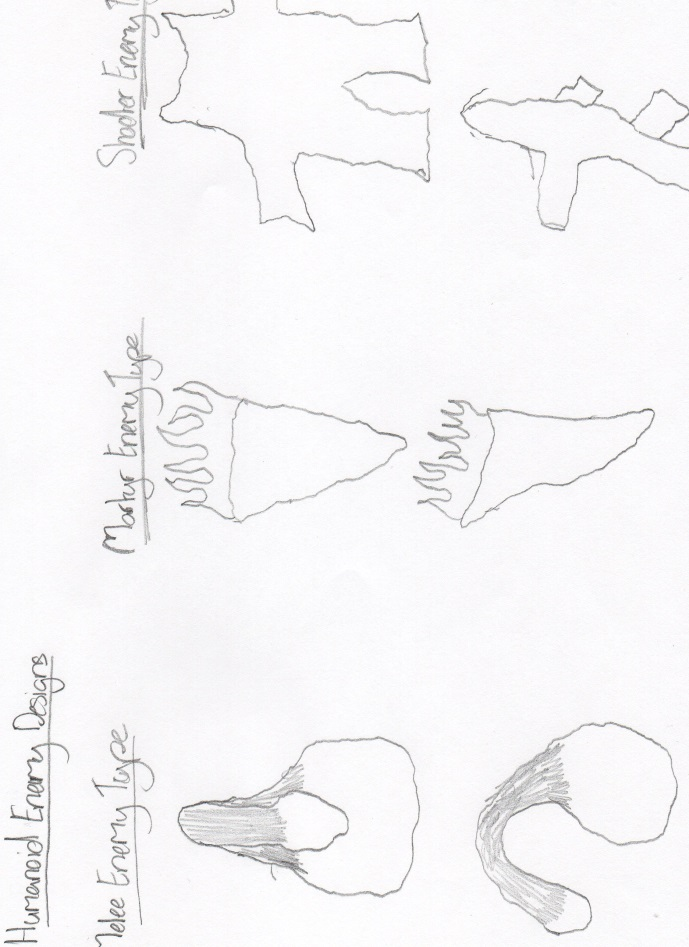 Humanoid Enemy Designs
Melee Enemy Type
Martyr Enemy Type
Shooter Enemy